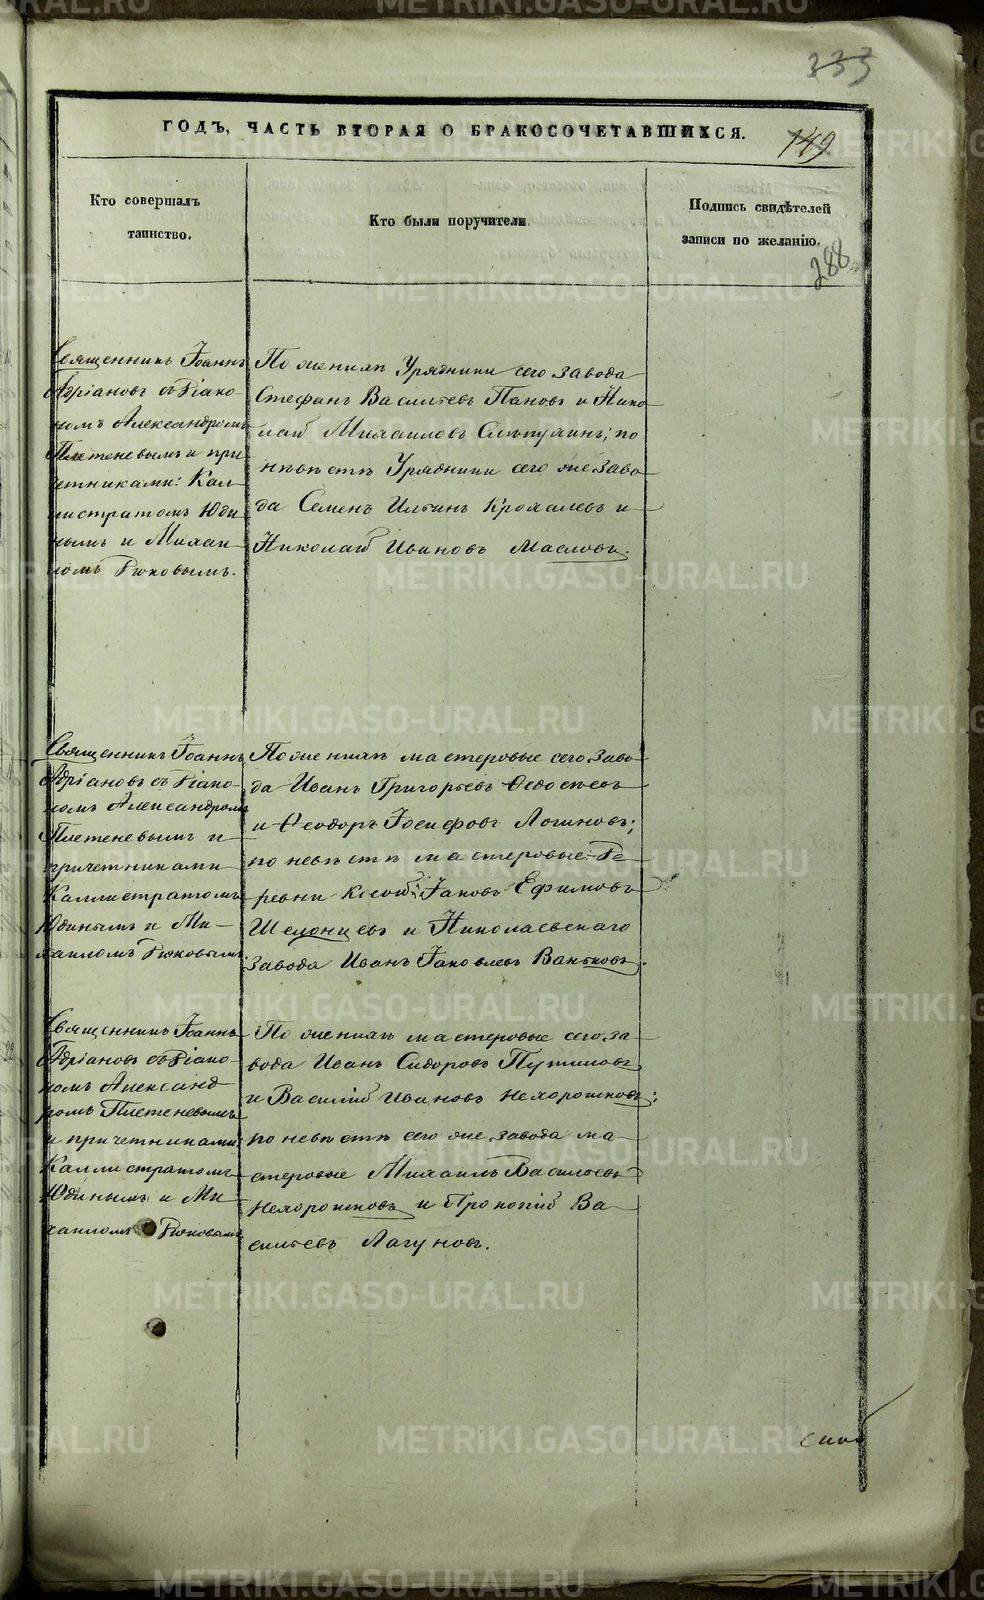 333
ГОДЪ, ЧАСТЬ ВТОРАЯ О БРАКОСОЧЕТАВШИХСЯ.
149
Кто совершалъ
таинство.
Кто были поручители.
Подпись свидѣтелей
записи по желанію.
288
Священникъ Іоаннъ
Адріановъ съ Діако-
номъ Александромъ
Плетеневымъ и при
четниками: Кал-
листратомъ Юди
нымъ и Михаи-
ломъ
По женихѣ Урядники сего завода
Стефанъ Васильевъ Пановъ и Нико
лай Михаиловъ по
невѣстѣ Урядники сего же заво
да Семенъ Ильинъ Крохалевъ и
Николай Ивановъ Масловъ.
Священникъ Іоаннъ
Адріановъ съ Діако-
номъ Александромъ
Плетеневымъ и
причетниками
Каллистратомъ
Юдинымъ и Ми-
хаиломъ
По женихѣ мастеровые сего заво-
да Иванъ Григорьевъ Ѳедосѣевъ
и Ѳеодоръ Іосифовъ Логиновъ;
по невѣстѣ мастеровые: Де-
ревни Іаковъ Ефимовъ
Шелонцевъ и Николаевскаго
завода Иванъ Іаковлевъ Ваньковъ.
Священникъ Іоаннъ
Адріановъ съ Діако-
номъ Александ
ромъ Плетеневымъ
и причетниками:
Каллистратомъ
Юдинымъ и Ми
хаиломъ
По женихѣ мастеровые сего за-
вода Иванъ Сидоровъ Путиловъ
и Василій Ивановъ Нехорошковъ;
по невѣстѣ сего же завода ма-
стеровые Михаилъ Васильевъ
Нехорошковъ и Прокопій Ва-
сильевъ Лагуновъ.
METRIKI.GASO-URAL.RU